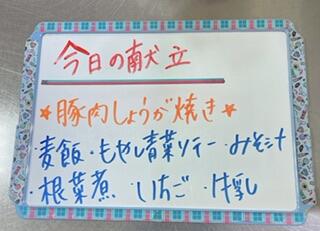 今日の献立
★豚肉しょうが焼き★
・麦飯・もやし青菜ソテー・みそ汁
・根菜煮・いちご・牛乳